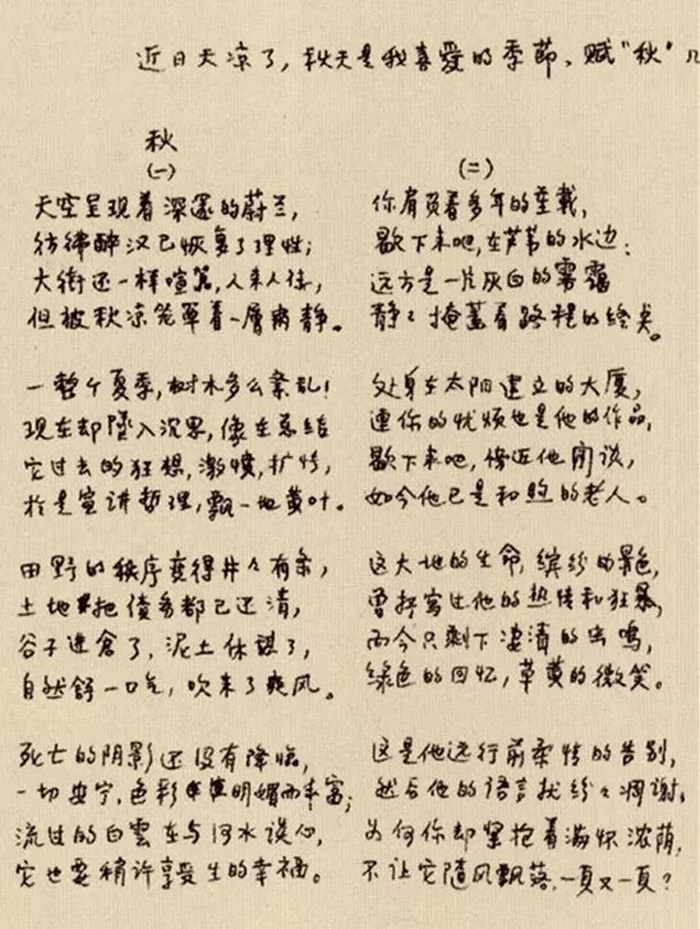 近日天凉了,秋天是我喜爱的季節、赋“秋”几
秋
(一)
天空呈现着深邃的蔚兰,
彷彿醉汉已恢复了理性;
大街还一样喧嚣,人来人往,
但被秋凉笼罩着一層肅静。
一整个夏季,树木多么紊乱!
现在却墜入沉思,像在总结
它过去的狂想,激愤,扩张,
於是宣讲哲理,飘一地黄叶。
田野的秩序变得井々有条,
土地把债务都已还清,
谷子进倉了,泥土休憩了,
自然舒一口气,吹来了爽风。
死亡的阴影还没有降临,
一切安宁,色彩明媚而丰富;
流过的白雲在与河水谈心,
它也要稍许享受生的幸福。
(二)
你肩负着多年的重载,
歇下来吧,在芦苇的水边:
远方是一片灰白的雾靄
静々掩蓋着路程的终点。
处身在太阳建立的大厦,
連你的忧烦也是他的作品,
歇下来吧,傍近他闲谈,
如今他已是和煦的老人。
这大地的生命,缤纷的景色,
曾抒写过他的热情和狂暴,
而今只剩下凄清的虫鸣,
绿色的回忆,草黄的微笑。
这是他远行前柔情的告别,
然后他的语言就纷々凋谢;
为何你却紧抱着满怀浓荫,
不让它随风飘落,一頁又一頁?